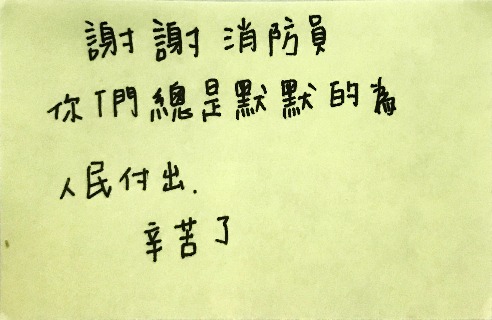 謝謝消防員
你們總是默默的為
人民付出.
辛苦了